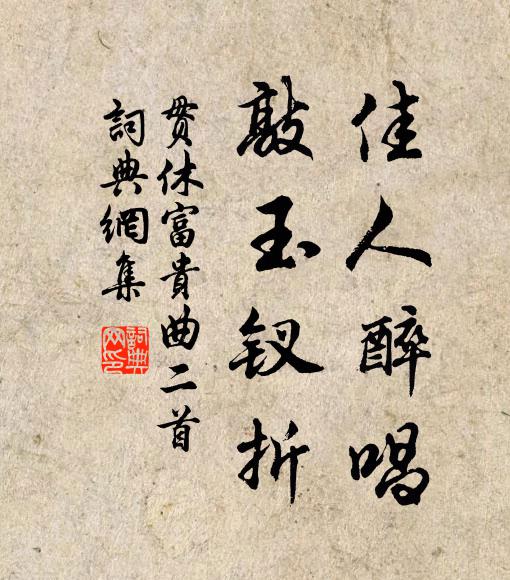 佳人醉唱
敲玉釵折
貫休富貴曲二首
詞典網集
詞典网印